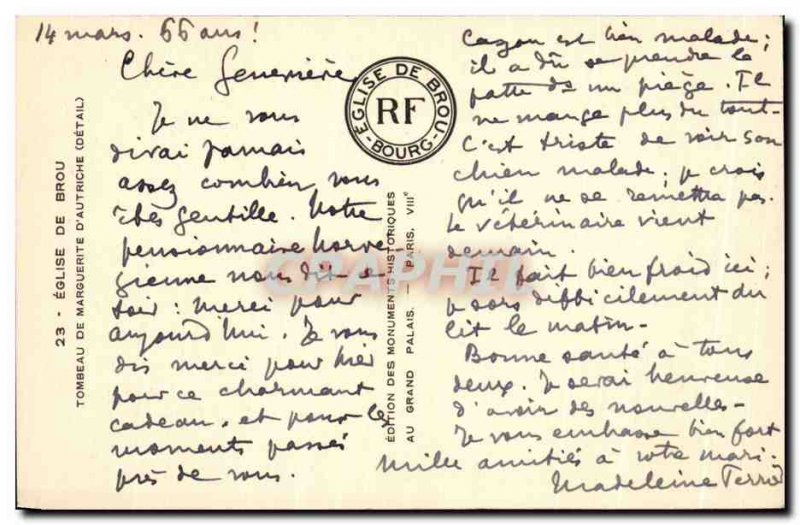 14 mars. 66 ans!
Chère Geneviève
Je ne vous
dirai jamais
assez combien vous
êtes gentille. Notre
pensionnaire norvé-
gienne nous dit ce
soir : merci pour
aujourd'hui. Je vous
dis merci pour hier
pour ce charmant
cadeau, et pour les
moments passés
près de vous.
Cazou est bien malade ;
il a dû se prendre la
patte ds un piège. Il
ne mange plus du tout -
C'est triste de voir son
chien malade ; je crois
qu'il ne se remettra pas.
Le vétérinaire vient
demain.
Il fait bien froid ici ;
je sors difficilement du
lit le matin -
Bonne santé à tous
deux. Je serai heureuse
d'avoir des nouvelles -
Je vous embrasse bien fort
Mille amitiés à votre mari.
Madeleine
ÉGLISE DE BROU
RF
- BOURG. -
23 - ÉGLISE DE BROU
TOMBEAU DE MARGUERITE D'AUTRICHE (DÉTAIL)
ÉDITION DES MONUMENTS HISTORIQUES
AU GRAND PALAIS. — PARIS, VIIIe